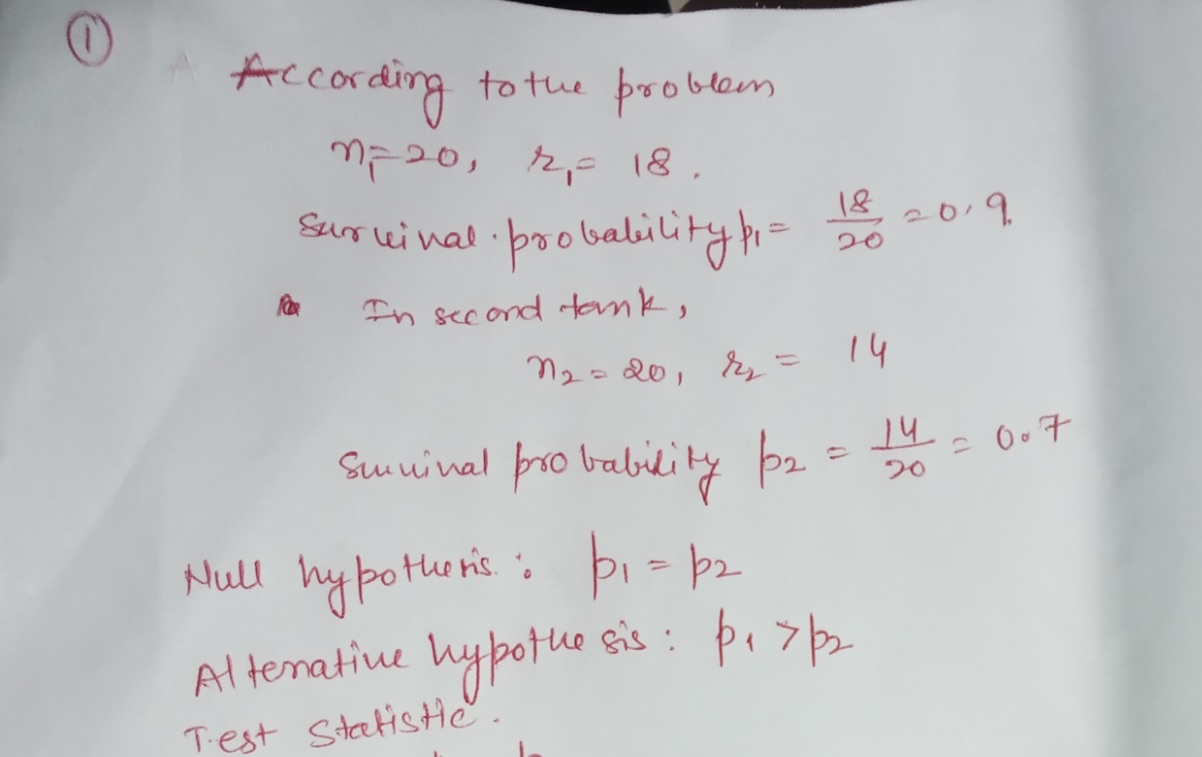 ①
According to the problem
n₁=20, r₁= 18.
Survival probability p₁= 18/20 = 0.9.
In second tank,
n₂=20, r₂ = 14
Survival probability p₂ = 14/20 = 0.7
Null hypothesis: p₁ = p₂
Alternative hypothesis: p₁ > p₂
Test Statistic.